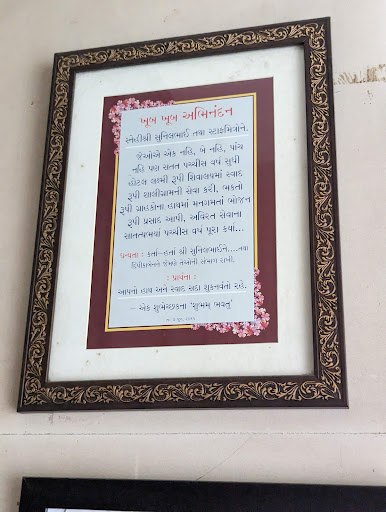 ખૂબ ખૂબ અભિનંદન
સ્નેહીશ્રી સુનિલભાઈ તથા સ્ટાફમિત્રોને.
જેઓએ એક નહિ, બે નહિ, પાંચ
નહિ પણ સતત પચ્ચીસ વર્ષ સુધી
હોટલ લક્ષ્મી રૂપી શિવાલયમાં સ્વાદ
રૂપી શાલીગ્રામની સેવા કરી, ભક્તો
રૂપી ગ્રાહકોના હાથમાં મનગમતાં ભોજન
રૂપી પ્રસાદ આપી, અવિરત સેવાના
સાતત્યભર્યા પચ્ચીસ વર્ષ પૂરા કર્યા...
ધન્યતા : કર્તા-હર્તા શ્રી સુનિલભાઈને....તથા
જેમણે તેઓની સંભાળ રાખી.
: પ્રાર્થના :
આપનો હાથ અને સ્વાદ સદા શુકનવંતો રહે.
- એક શુભેચ્છકના 'શુભમ ભવતુ'